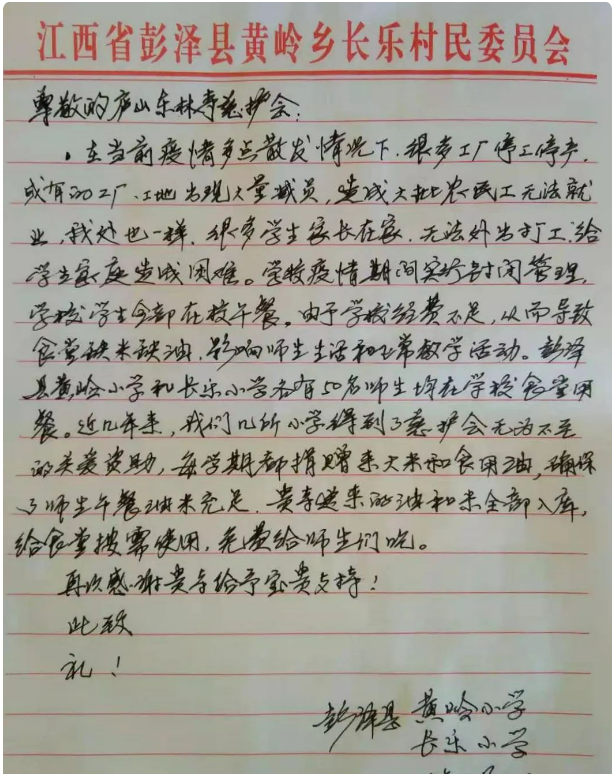 江西省彭泽县黄岭乡长乐村民委员会
尊敬的庐山东林寺慈护会:
在当前疫情多点散发情况下,很多工厂停工停产,
或有的工厂、工地出现大量减员,造成大批农民工无法就
业,我处也一样,很多学生家长在家,无法外出打工,给
学生家庭造成困难。学校疫情期间实行封闭管理,
学校学生全部在校午餐。由于学校经费不足,从而导致
食堂缺米缺油,影响师生生活和正常教学活动。彭泽
县黄岭小学和长乐小学各有50名师生均在学校食堂用
餐。近几年来,我们几所小学得到了慈护会无微不至
的关爱资助,每学期都捐赠来大米和食用油,确保
了师生午餐油米充足,贵寺送来的油和米全部入库,
给食堂按需使用,免费给师生们吃。
再次感谢贵寺给予宝贵支持!
此致
礼!
彭泽县 黄岭小学
长乐小学